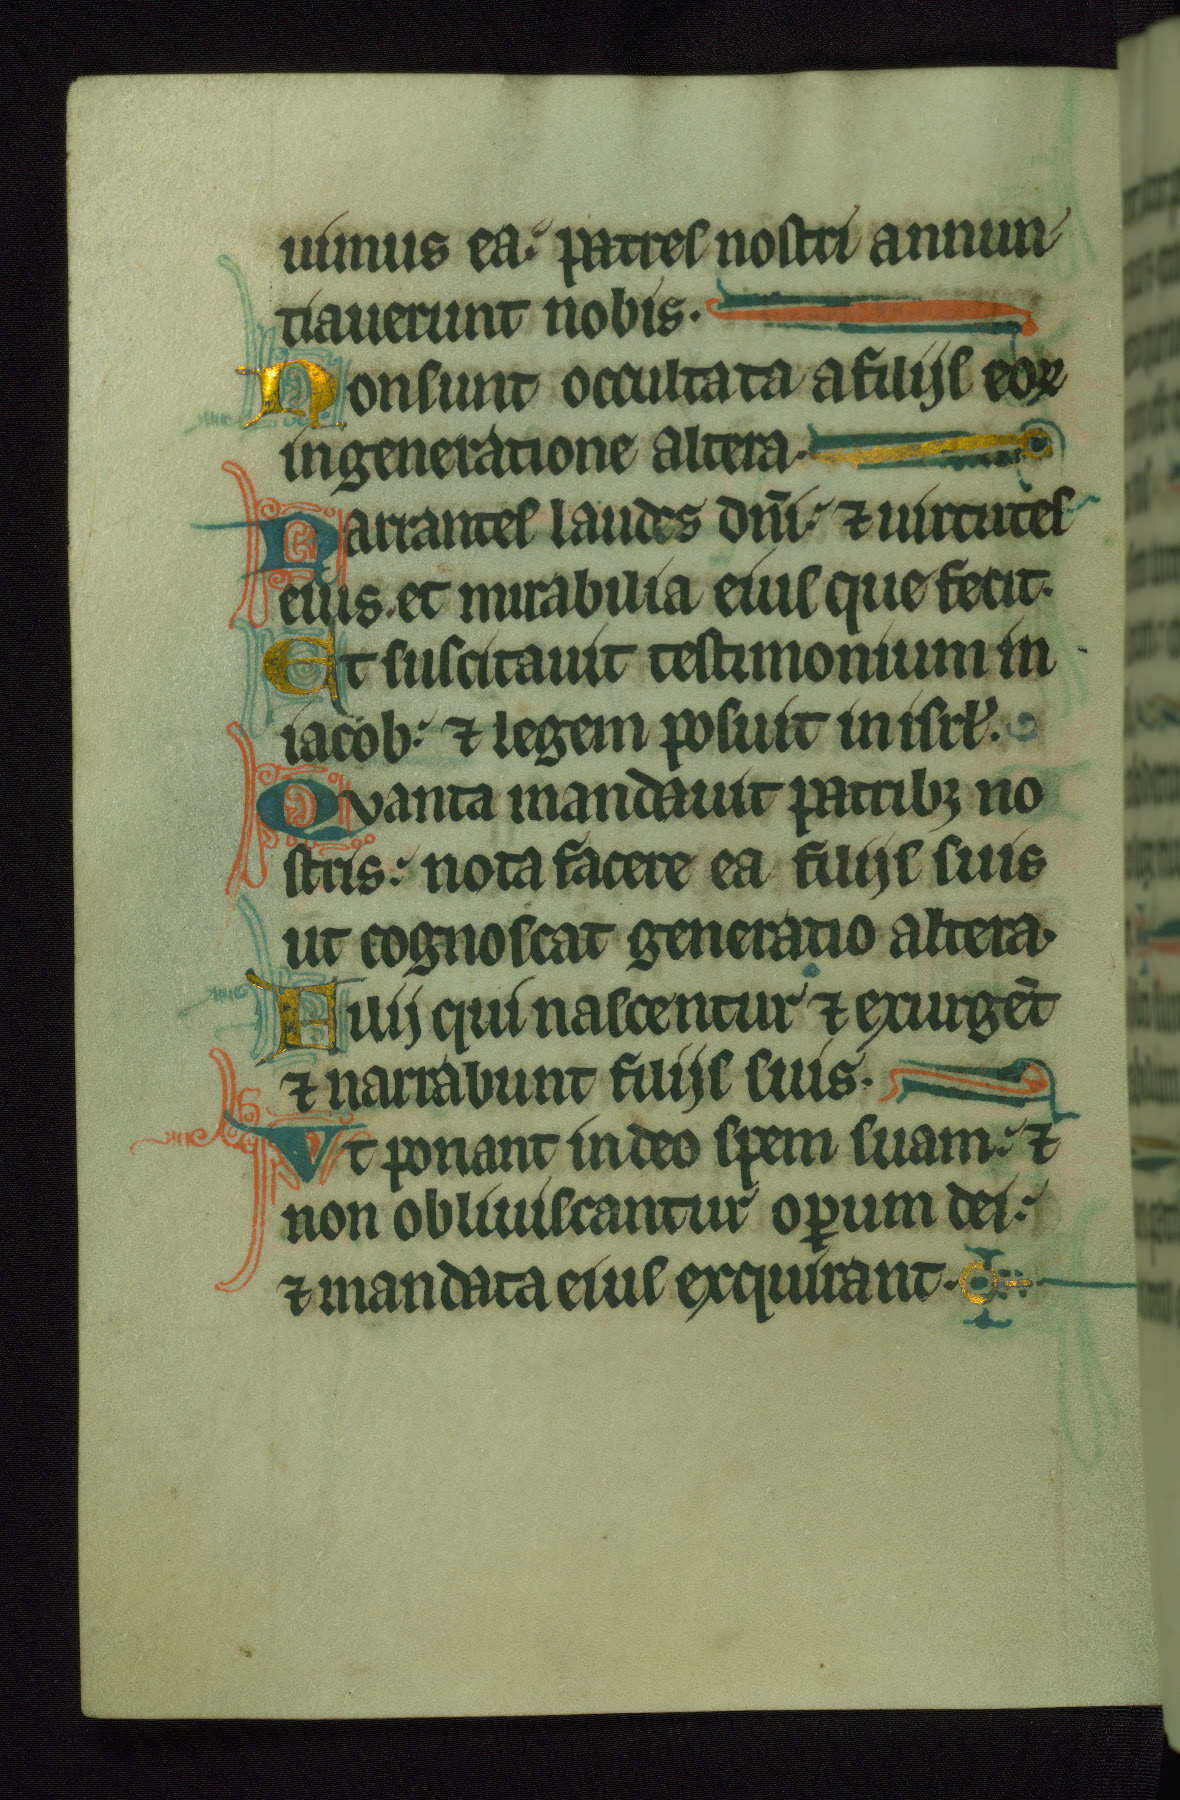 uimus ea: patres nostri annun
tiauerunt nobis.
Non sunt occultata a filijs eoꝝ
in generatione altera.
Narrantes laudes dn̄i: ⁊ uirtutes
eius. et mirabilia eius que fecit.
Et suscitauit testimonium in
iacob: ⁊ legem posuit in isrl̓.
Quanta mandauit patribꝫ no
stris: nota facere ea filijs suis
ut cognoscat generatio altera.
Filij qui nascentur ⁊ exurgēt
⁊ narrabunt filijs suis.
Vt ponant in deo spem suam: ⁊
non obliuiscantur oꝑum dei:
⁊ mandata eius exquirant.